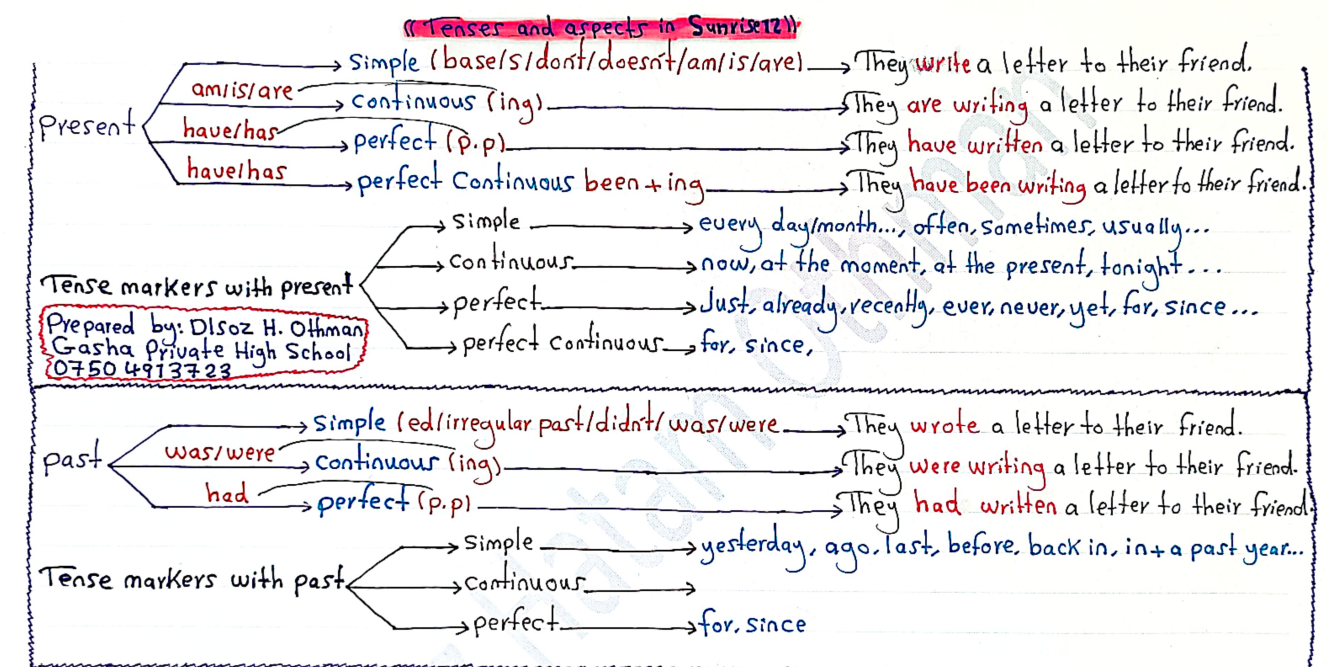 (( Tenses and aspects in Sunrise12))
Simple (base/s/don't/doesn't/am/is/are) They write a letter to their friend.
am/is/are continuous (ing) They are writing a letter to their friend.
present
have/has perfect (p.p) They have written a letter to their friend.
have/has perfect Continuous been + ing They have been writing a letter to their friend.
Simple every day/month..., often, sometimes, usually...
continuous now, at the moment, at the present, tonight...
Tense markers with present
perfect Just, already, recently, ever, never, yet, for, since...
perfect continuous for, since,
Prepared by: Dlsoz H. Othman
Gasha Private High School
0750 4913723
Simple (ed/irregular past/didn't/was/were They wrote a letter to their friend.
past was/were continuous (ing) They were writing a letter to their friend.
had perfect (p.p) They had written a letter to their friend.
Simple yesterday, ago, last, before, back in, in+a past year...
Tense markers with past continuous
perfect for, since
Hatam Othman